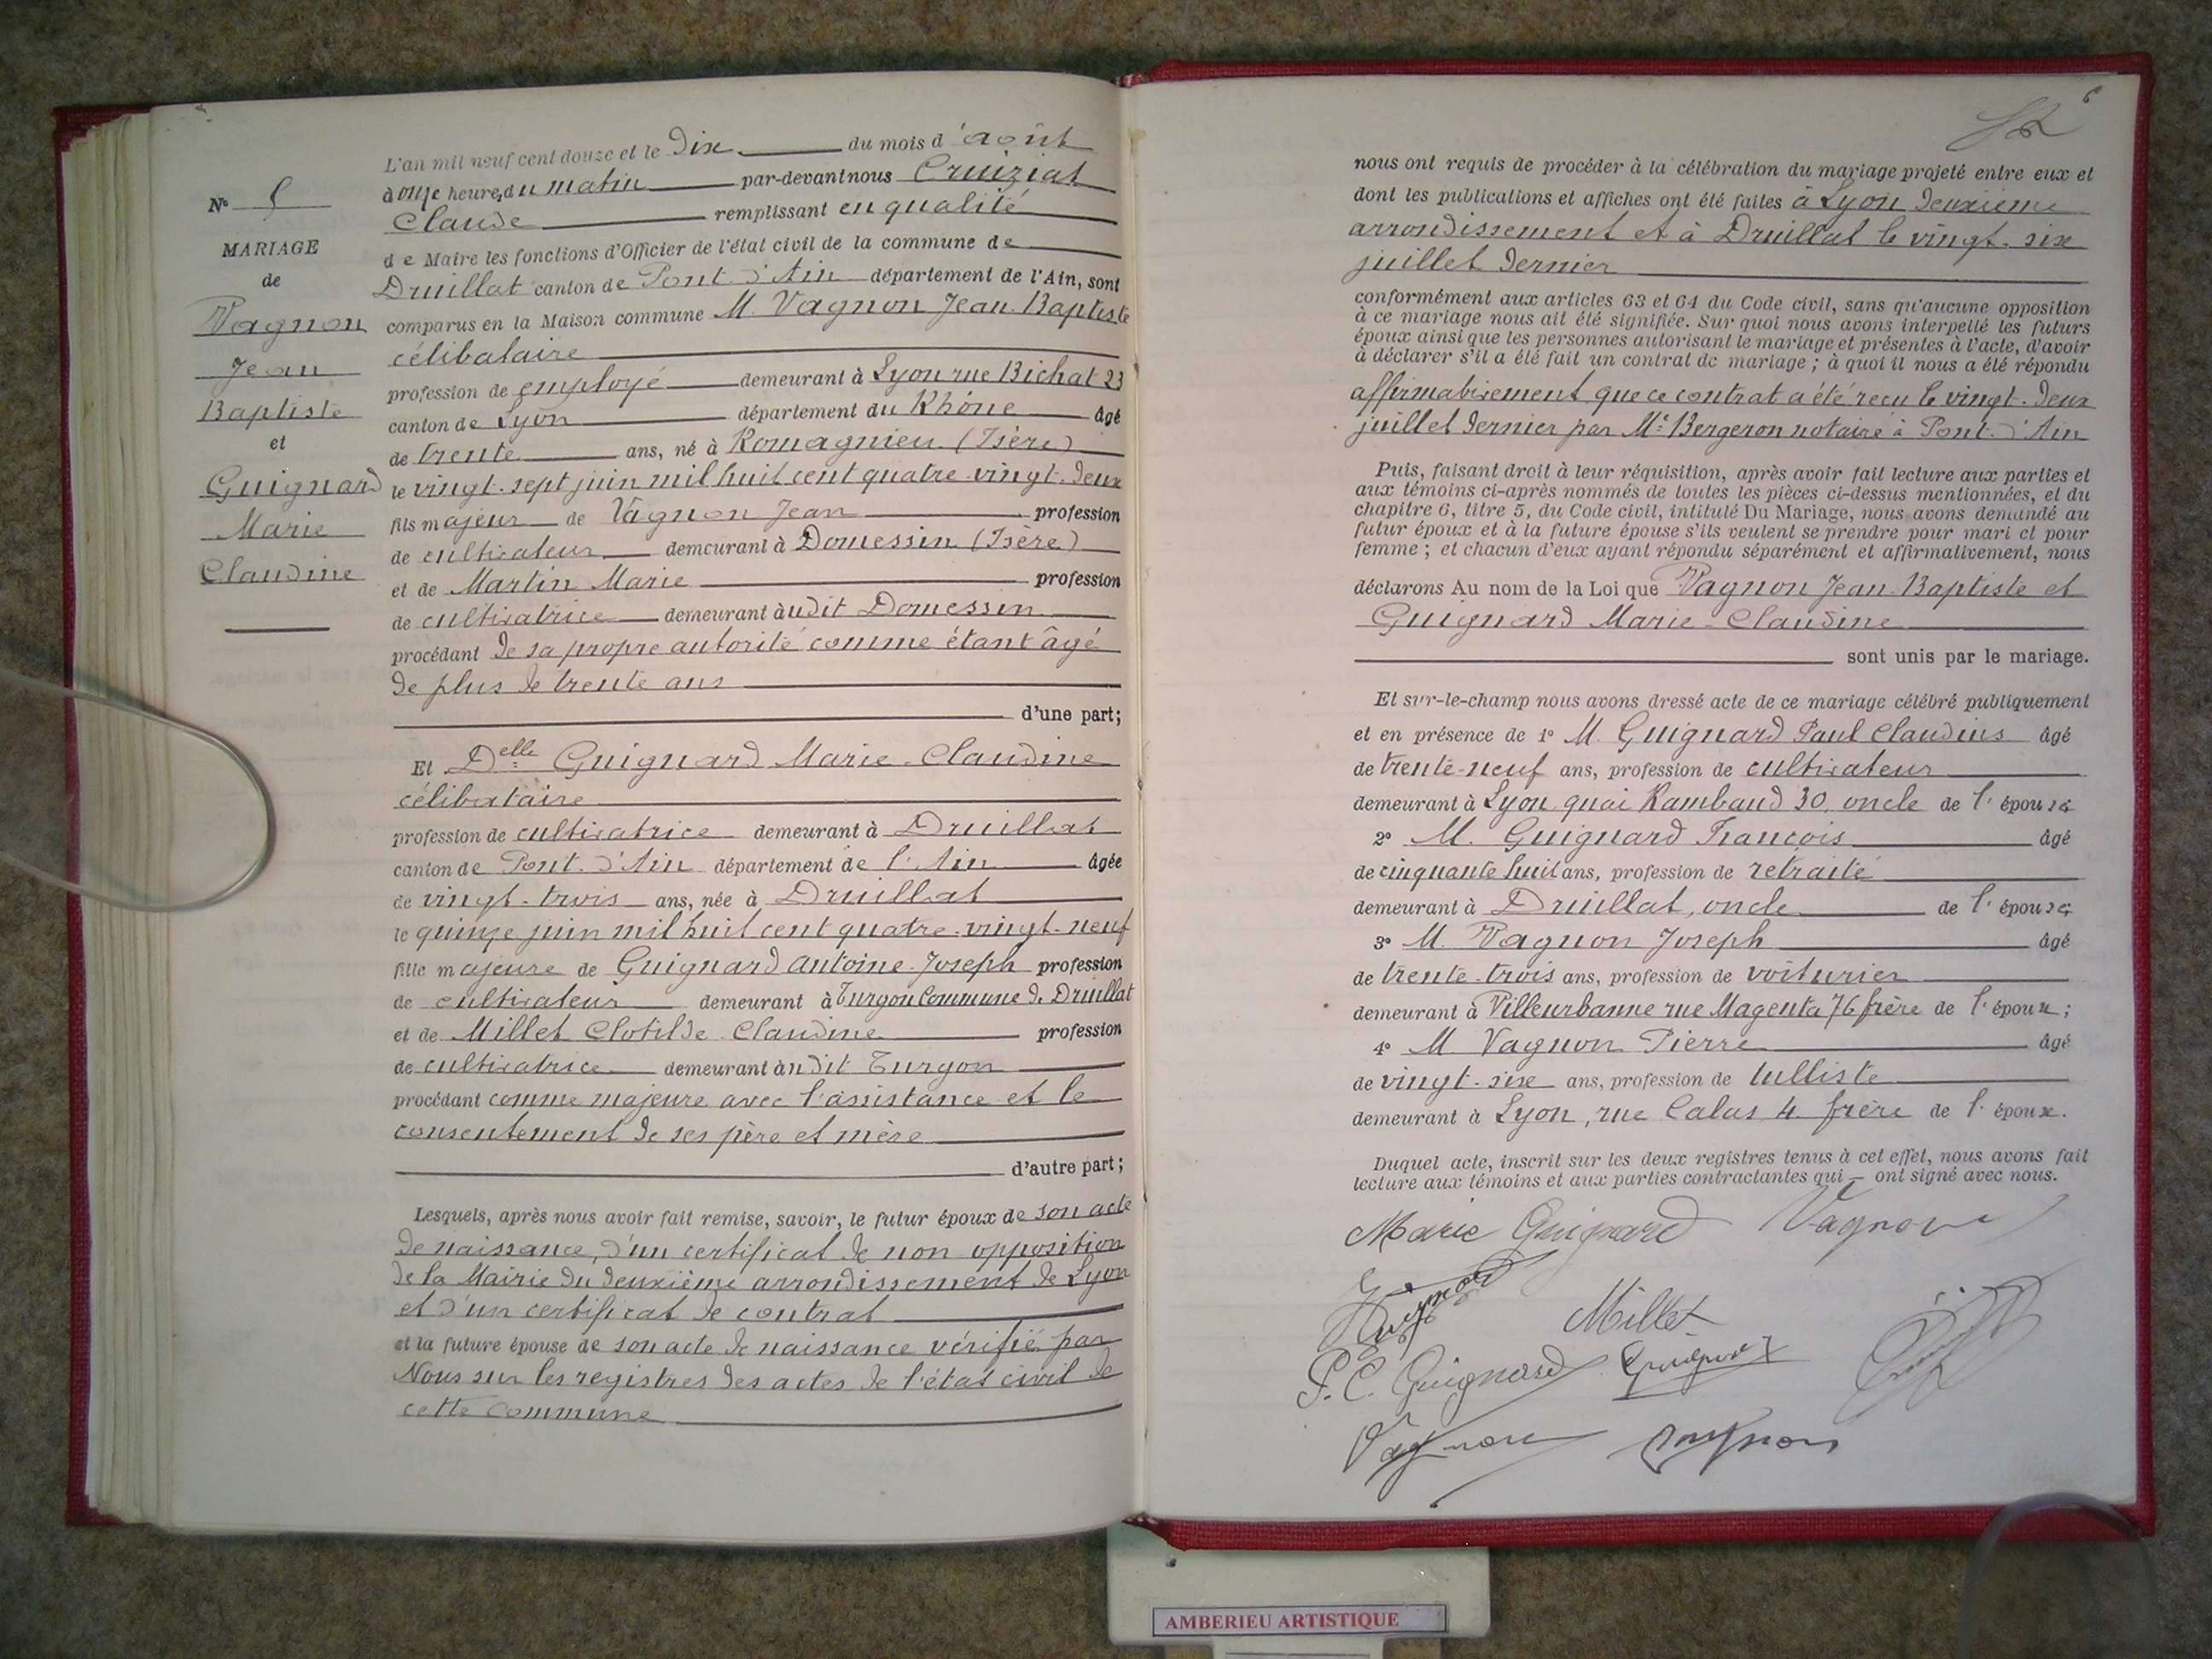 L'an mil neuf cent douze et le Dix du mois d'août
à onze heures du matin par-devant nous Cruiziat
Claude remplissant en qualité
de Maire les fonctions d'Officier de l'état civil de la commune de
Druillat canton de Pont-d'Ain département de l'Ain, sont
comparus en la Maison commune M. Vagnon Jean-Baptiste
célibataire
profession de employé demeurant à Lyon rue Bichat 23
canton de Lyon département du Rhône âgé
de trente ans, né à Romagnieu (Isère)
le vingt-sept juin mil huit cent quatre-vingt-deux
fils majeur de Vagnon Jean profession
de cultivateur demeurant à Domessin (Isère)
et de Martin Marie profession
de cultivatrice demeurant àudit Domessin
procédant de sa propre autorité comme étant âgé
de plus de trente ans
d'une part;
Et Delle Guignard Marie-Claudine
célibataire
profession de cultivatrice demeurant à Druillat
canton de Pont-d'Ain département de l'Ain âgée
de vingt-trois ans, née à Druillat
le quinze juin mil huit cent quatre-vingt-neuf
fille majeure de Guignard Antoine-Joseph profession
de cultivateur demeurant à Turgon Commune de Druillat
et de Millet Clotilde Claudine profession
de cultivatrice demeurant àudit Turgon
procédant comme majeure avec l'assistance et le
consentement de ses père et mère
d'autre part;
Lesquels, après nous avoir fait remise, savoir, le futur époux de son acte
de naissance, d'un certificat de non opposition
de la Mairie du deuxième arrondissement de Lyon
et d'un certificat de contrat
et la future épouse de son acte de naissance vérifié par
Nous sur les registres des actes de l'état civil de
cette commune
N°
MARIAGE
de
Vagnon
Jean
Baptiste
et
Guignard
Marie
Claudine
6
nous ont requis de procéder à la célébration du mariage projeté entre eux et
dont les publications et affiches ont été faites à Lyon deuxième
arrondissement et à Druillat le vingt-six
juillet dernier
conformément aux articles 63 et 64 du Code civil, sans qu'aucune opposition
à ce mariage nous ait été signifiée. Sur quoi nous avons interpellé les futurs
époux ainsi que les personnes autorisant le mariage et présentes à l'acte, d'avoir
à déclarer s'il a été fait un contrat de mariage; à quoi il nous a été répondu
affirmativement que ce contrat a été reçu le vingt-deux
juillet dernier par Me Bergeron notaire à Pont-d'Ain
Puis, faisant droit à leur réquisition, après avoir fait lecture aux parties et
aux témoins ci-après nommés de toutes les pièces ci-dessus mentionnées, et du
chapitre 6, titre 5, du Code civil, intitulé Du Mariage, nous avons demandé au
futur époux et à la future épouse s'ils veulent se prendre pour mari et pour
femme; et chacun d'eux ayant répondu séparément et affirmativement, nous
déclarons Au nom de la Loi que Vagnon Jean-Baptiste et
Guignard Marie-Claudine
sont unis par le mariage.
Et sur-le-champ nous avons dressé acte de ce mariage célébré publiquement
et en présence de 1° M. Guignard Paul Claudius âgé
de trente-neuf ans, profession de cultivateur
demeurant à Lyon quai Rambaud 30, oncle de l'épouse
2° M. Guignard François âgé
de cinquante huit ans, profession de retraité
demeurant à Druillat, oncle de l'épouse;
3° M. Vagnon Joseph âgé
de trente-trois ans, profession de voiturier
demeurant à Villeurbanne rue Magenta 76 frère de l'époux;
4° M Vagnon Pierre âgé
de vingt-six ans, profession de tulliste
demeurant à Lyon, rue Calas 4 frère de l'époux.
Duquel acte, inscrit sur les deux registres tenus à cet effet, nous avons fait
lecture aux témoins et aux parties contractantes qui – ont signé avec nous.
Marie Guignard Vagnon
Guignard
Millet
P. C. Guignard Guignard
Vagnon Vagnon
AMBERIEU ARTISTIQUE